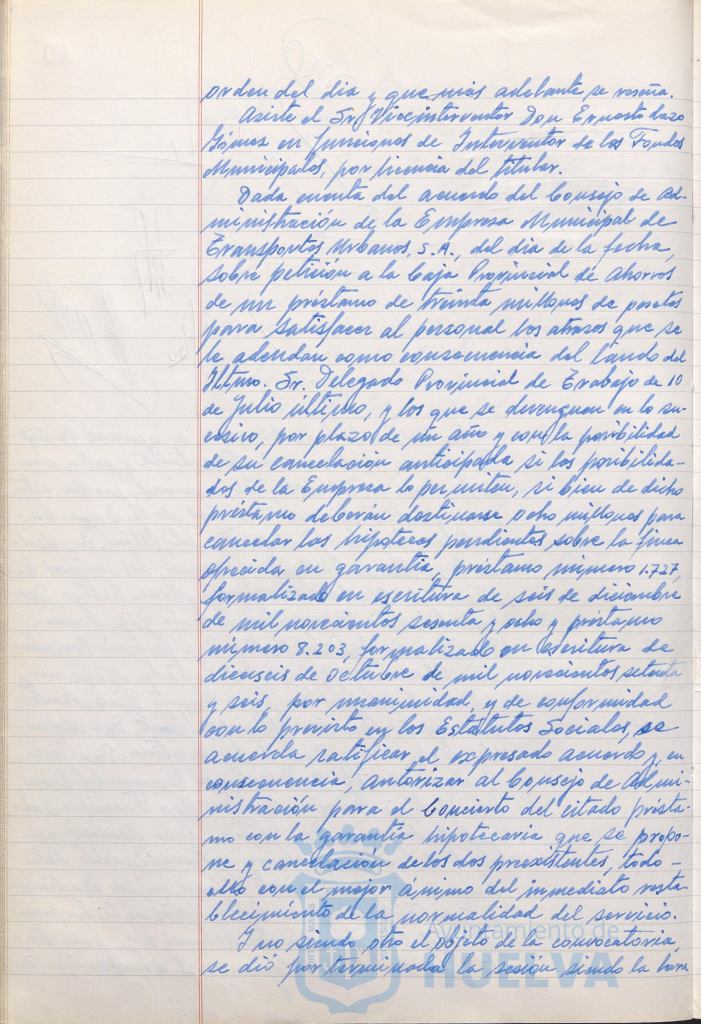 orden del dia y que más adelante se reseña.
Asiste el Sr. Viceinterventor Don Ernesto Lazo
Gómez en funciones de Interventor de los Fondos
Municipales, por licencia del titular.
Dada cuenta del acuerdo del Consejo de Ad-
ministración de la Empresa Municipal de
Transportes Urbanos, S.A., del dia de la fecha,
sobre petición a la Caja Provincial de Ahorros
de un préstamo de treinta millones de pesetas
para satisfacer al personal los atrasos que se
le adeudan como consecuencia del laudo del
Iltmo. Sr. Delegado Provincial de Trabajo de 10
de Julio último, y los que se devenguen en lo su-
cesivo, por plazo de un año y con la posibilidad
de su cancelación anticipada si las posibilida-
des de la Empresa lo permiten, si bien de dicho
préstamo deberán destinarse ocho millones para
cancelar las hipotecas pendientes sobre la finca
ofrecida en garantia, préstamo número 1.727,
formalizado en escritura de seis de diciembre
de mil novecientos sesenta y ocho y préstamo
número 8.203, formalizado en escritura de
dieciseis de Octubre de mil novecientos setenta
y seis, por unanimidad, y de conformidad
con lo previsto en los Estatutos Sociales, se
acuerda ratificar el expresado acuerdo y, en
consecuencia, autorizar al Consejo de Admi-
nistración para el Concierto del citado présta-
mo con la garantia hipotecaria que se propo-
ne y cancelación de los dos preexistentes, todo
ello con el mejor ánimo del inmediato resta-
blecimiento de la normalidad del servicio.
Y no siendo otro el objeto de la convocatoria,
se dió por terminada la sesión siendo la hora
Ayuntamiento de
HUELVA